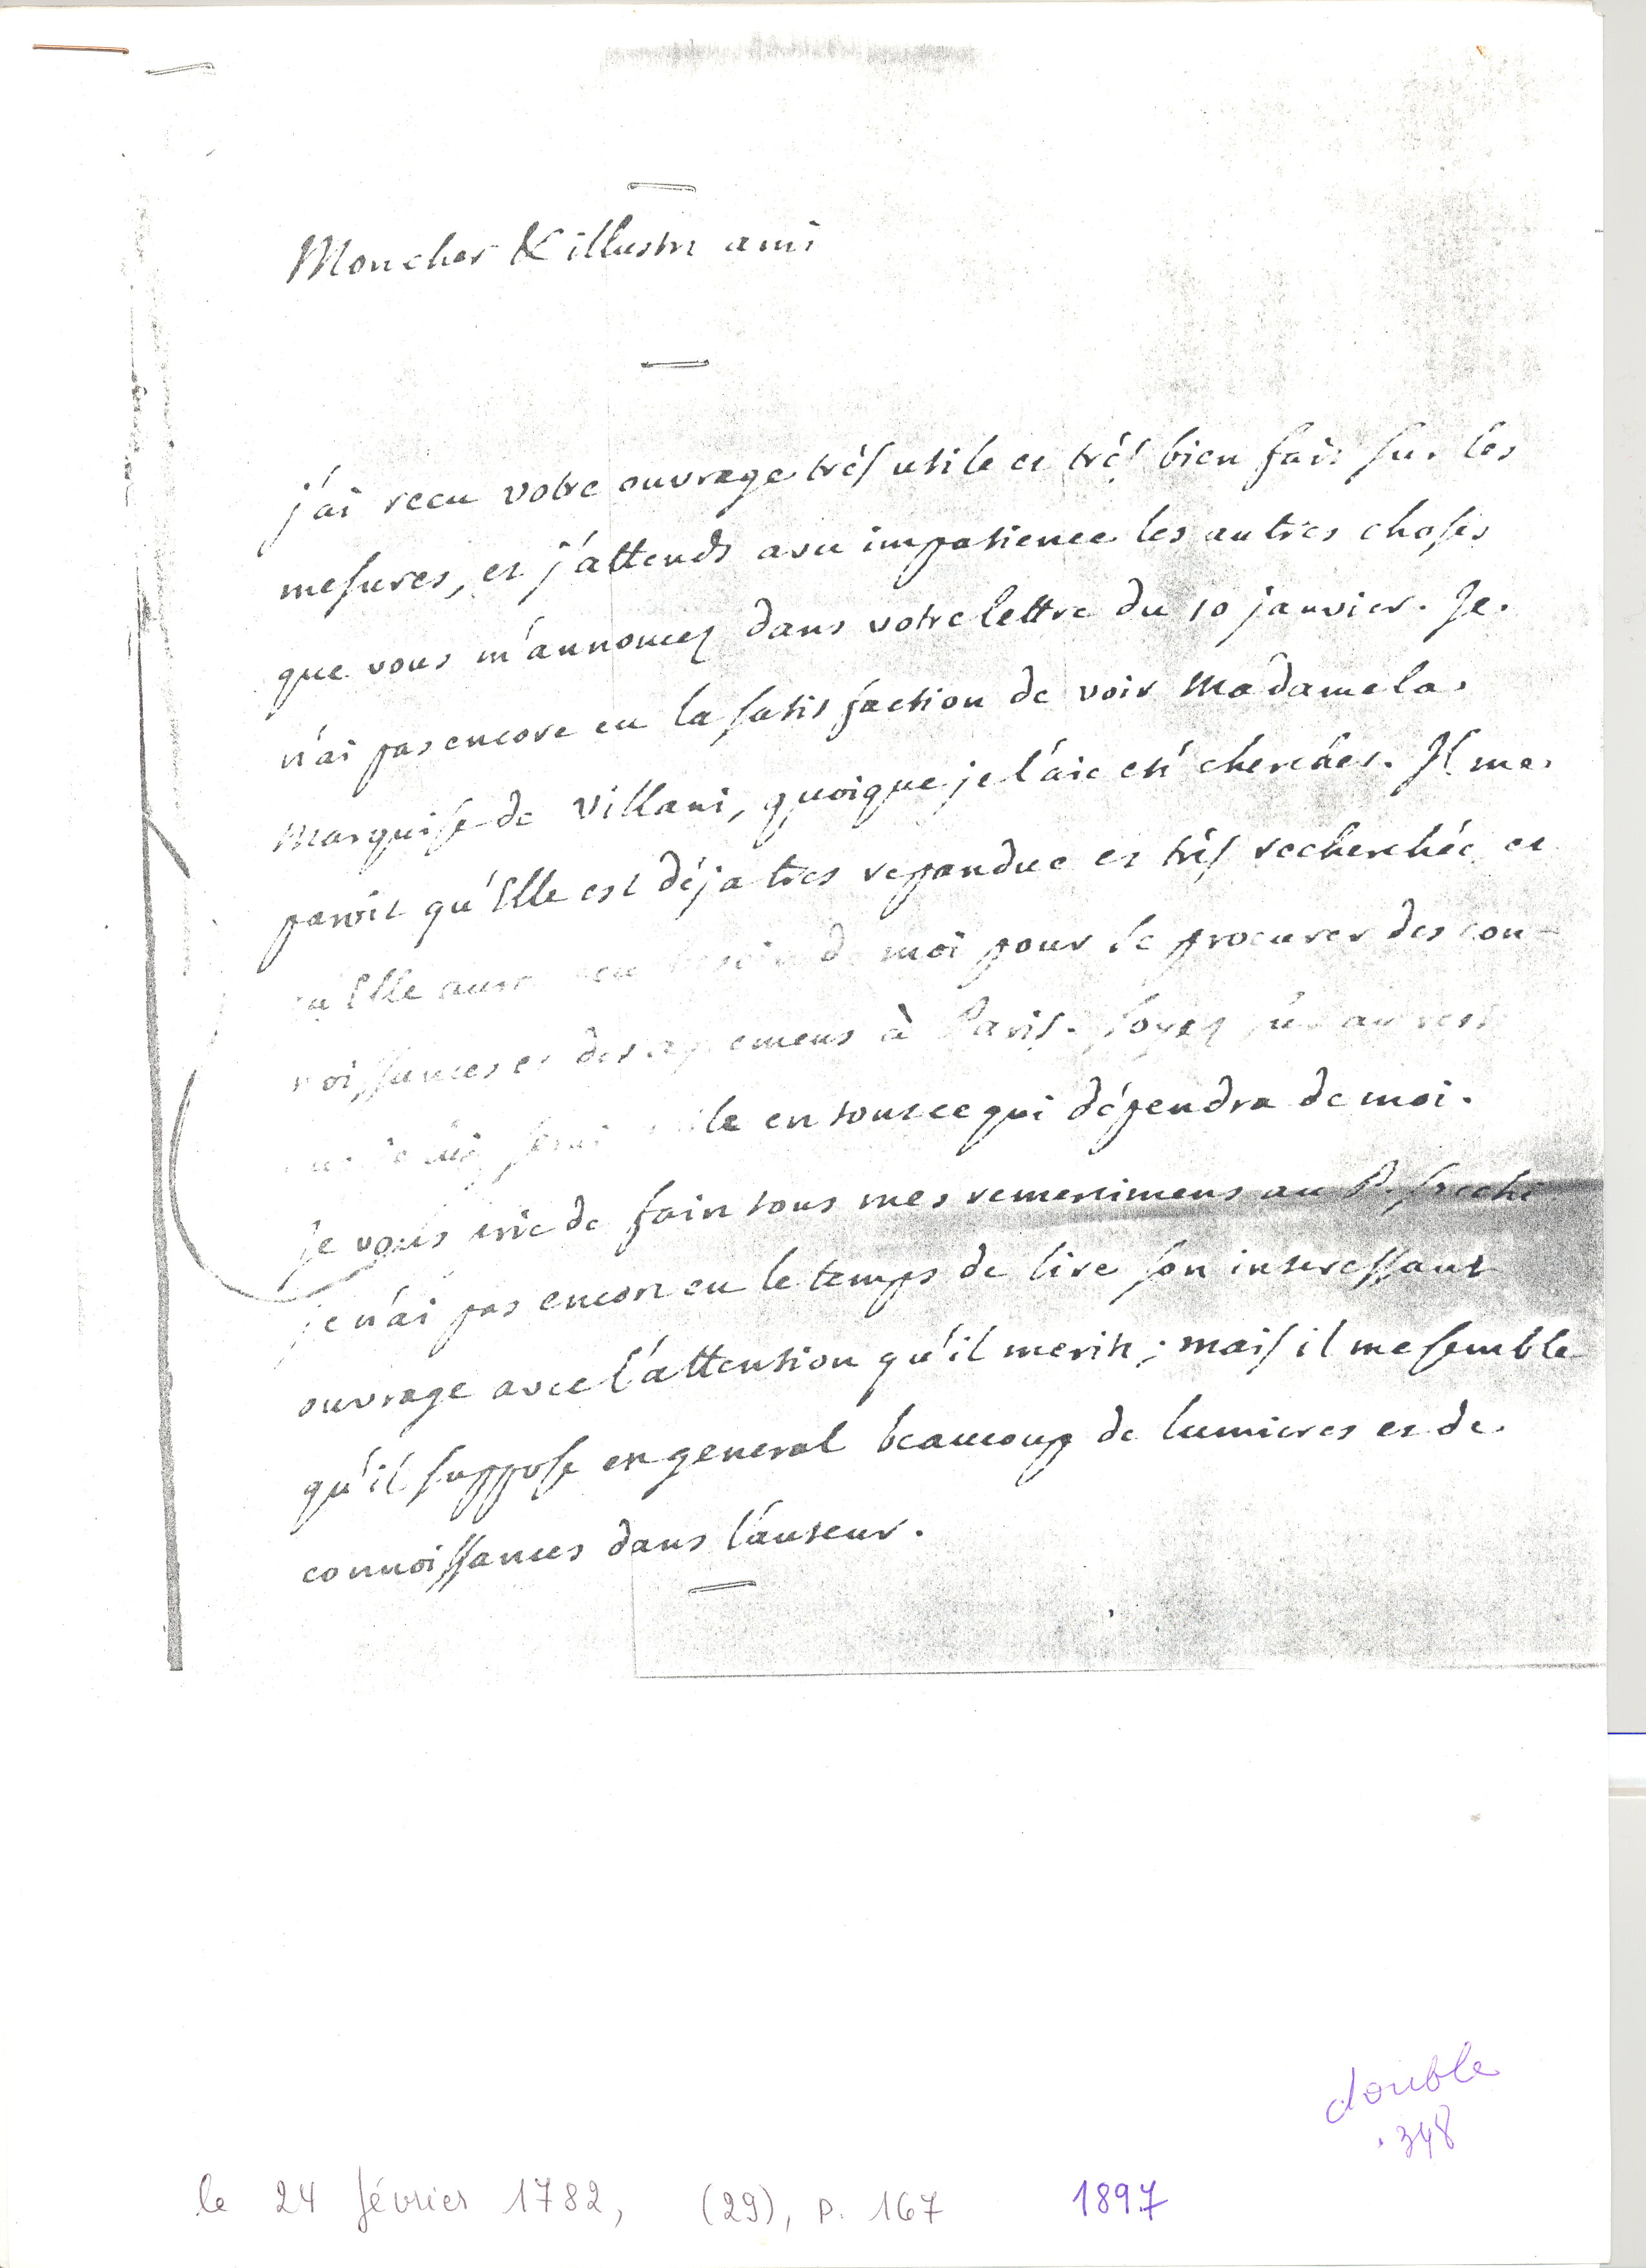 Mon cher & illustre ami
j'ai recu votre ouvrage très utile et très bien fait sur les
mesures, et j'attends avec impatience les autres choses
que vous m'annoncez dans votre lettre du 10 janvier. Je
n'ai pas encore eu la satisfaction de voir Madame la
Marquise de Villani, quoique je l'aie eté chercher. Il me
paroit qu'Elle est déja tres repandue et très recherchée et
qu'Elle aura peu besoin de moi pour se procurer des con-
noissances et des agremens à Paris. Soyez sûr au reste
que je lui serai utile en tout ce qui dépendra de moi.
je vous prie de faire tous mes remercimens au P.
je n'ai pas encore eu le temps de lire son interessant
ouvrage avec l'attention qu'il merite ; mais il me semble
qu'il suppose en general beaucoup de lumieres et de
connoissances dans l'auteur.
double
348
le 24 février 1782, (29), p. 167 1897